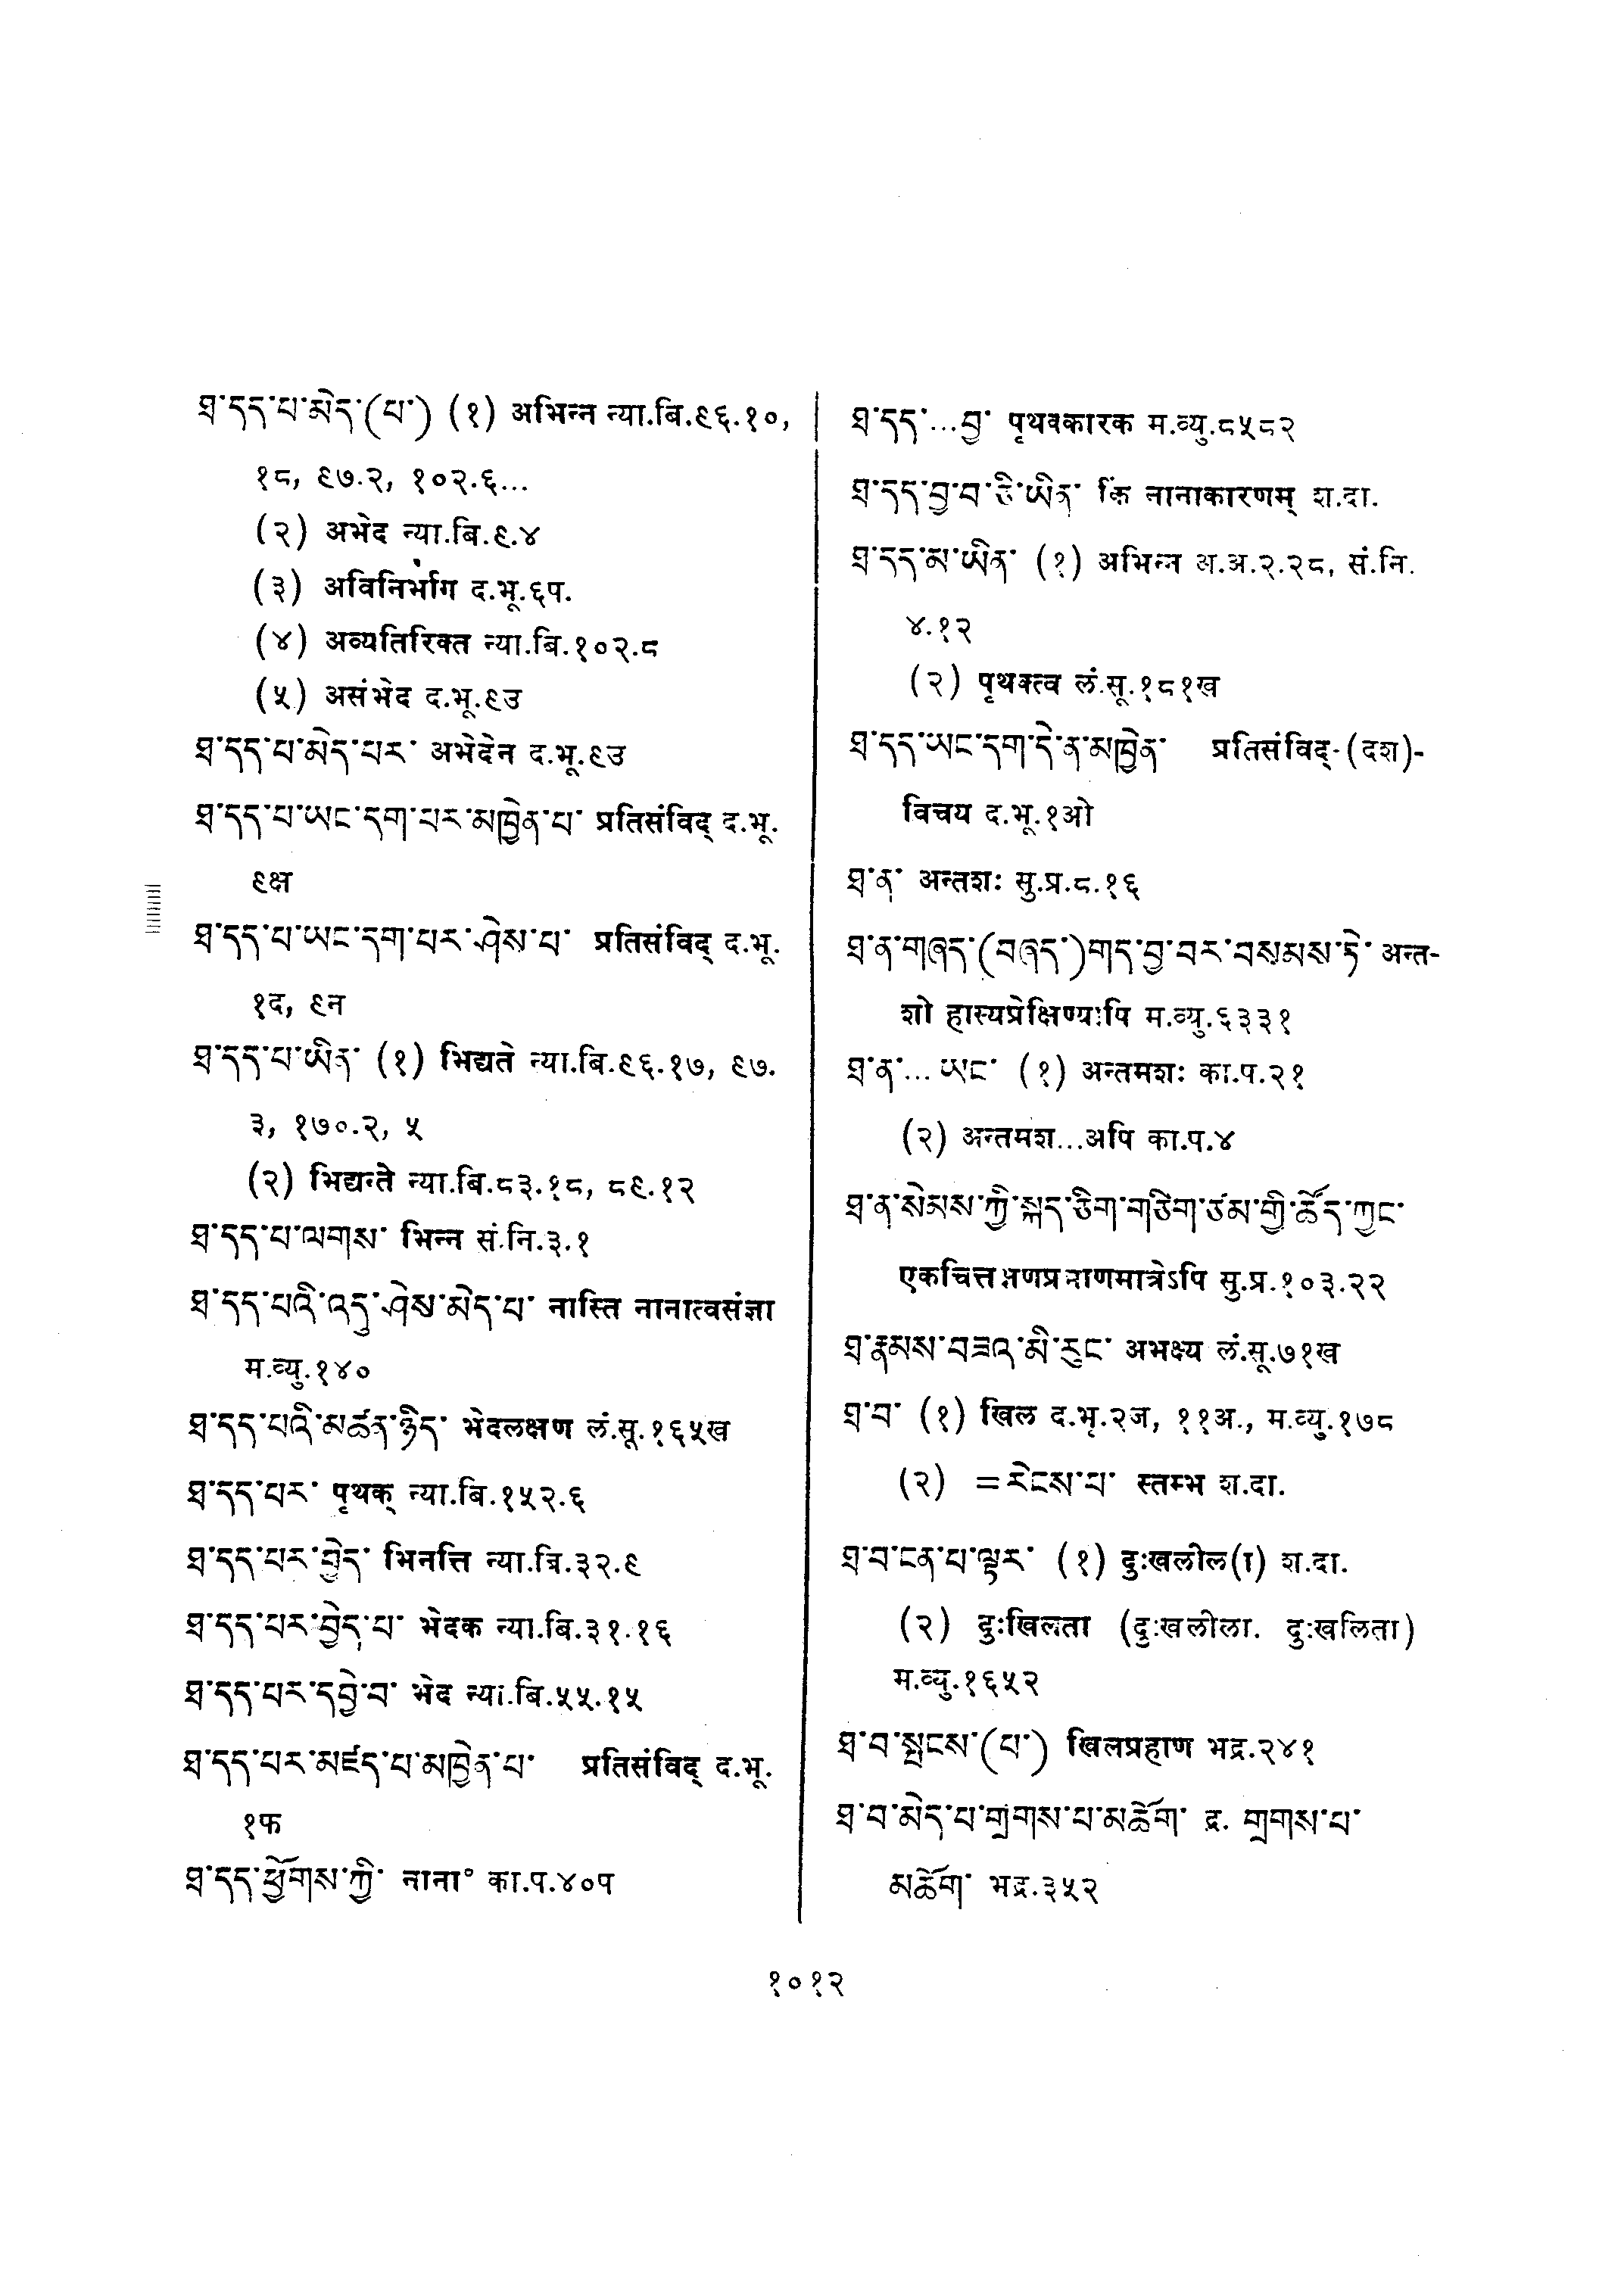 ཐ་དད་པ་མེད་(པ་) (१) अभिन्न न्या.बि.९६.१०,
१८, ९७.२, १०२.६...
(२) अभेद न्या.बि.९.४
(३) अविनिर्भाग द.भू.६प.
(४) अव्यतिरिक्त न्या.बि.१०२.८
(५) असंभेद द.भू.९उ
ཐ་དད་པ་མེད་པར་ अभेदेन द.भू.९उ
ཐ་དད་པ་ཡང་དག་པར་མཁྱེན་པ་ प्रतिसंविद् द.भू.
९क्ष
ཐ་དད་པ་ཡང་དག་པར་ཤེས་པ་ प्रतिसंविद् द.भू.
१द, ९न
ཐ་དད་པ་ཡིན་ (१) भिद्यते न्या.बि.९६.१७, ९७.
३, १७०.२, ५
(२) भिद्यन्ते न्या.बि.८३.१८, ८९.१२
ཐ་དད་པ་ལགས་ भिन्न सं.नि.३.१
ཐ་དད་པའི་འདུ་ཤེས་མེད་པ་ नास्ति नानात्वसंज्ञा
म.व्यु.१४०
ཐ་དད་པའི་མཚན་ཉིད་ भेदलक्षण लं.सू.१६५ख
ཐ་དད་པར་ पृथक् न्या.बि.१५२.६
ཐ་དད་པར་བྱེད་ भिनत्ति न्या.बि.३२.९
ཐ་དད་པར་བྱེད་པ་ भेदक न्या.बि.३१.१६
ཐ་དད་པར་དབྱེ་བ་ भेद न्या.बि.५५.१५
ཐ་དད་པར་མཛད་པ་མཁྱེན་པ་ प्रतिसंविद् द.भू.
१फ
ཐ་དད་ཕྱོགས་ཀྱི་ नाना° का.प.४०प
ཐ་དད་...བྱ་ पृथक्कारक म.व्यु.८५८२
ཐ་དད་བྱ་བ་ཅི་ཡིན་ किं नानाकारणम् श.दा.
ཐ་དད་མ་ཡིན་ (१) अभिन्न अ.अ.२.२८, सं.नि.
४.१२
(२) पृथक्त्व लं.सू.१८१ख
ཐ་དད་ཡང་དག་དེ་ན་མཁྱེན་ प्रतिसंविद्-(दश)-
विचय द.भू.१ओ
ཐ་ན་ अन्तशः सु.प्र.८.१६
ཐ་ན་གཞད་(བཞད་)གད་བྱ་བར་བསམས་ཏེ་ अन्त-
शो हास्यप्रेक्षिण्यापि म.व्यु.६३३१
ཐ་ན་... ཡང་ (१) अन्तमशः का.प.२१
(२) अन्तमश...अपि का.प.४
ཐ་ན་སེམས་ཀྱི་སྐད་ཅིག་གཅིག་ཙམ་གྱི་ཚོད་ཀྱང་
एकचित्तक्षणप्रमाणमात्रेऽपि सु.प्र.१०३.२२
ཐ་རྣམས་བཟའ་མི་རུང་ अभक्ष्य लं.सू.७१ख
ཐ་བ་ (१) खिल द.भू.२ज, ११अ., म.व्यु.१७८
(२) =རེངས་པ་ स्तम्भ श.दा.
ཐ་བ་ངན་པ་ལྟར་ (१) दुःखलील(ा) श.दा.
(२) दुःखिलता (दुःखलीला. दुःखलिता)
म.व्यु.१६५२
ཐ་བ་སྤངས་(པ་) खिलप्रहाण भद्र.२४१
ཐ་བ་མེད་པ་གྲགས་པ་མཆོག་ द्र. གྲགས་པ་
མཆོག་ भद्र.३५२
१०१२